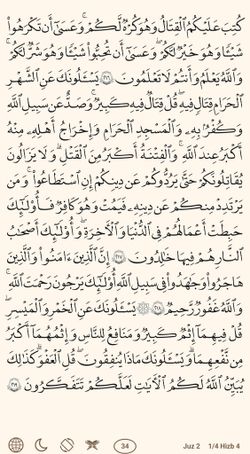 كُتِبَ عَلَيْكُمُ ٱلْقِتَالُ وَهُوَ كُرْهٌ لَّكُمْ ۖ وَعَسَىٰٓ أَن تَكْرَهُوا۟
شَيْـًٔا وَهُوَ خَيْرٌ لَّكُمْ ۖ وَعَسَىٰٓ أَن تُحِبُّوا۟ شَيْـًٔا وَهُوَ شَرٌّ لَّكُمْ ۗ
وَٱللَّهُ يَعْلَمُ وَأَنتُمْ لَا تَعْلَمُونَ ٢١٦ يَسْـَٔلُونَكَ عَنِ ٱلشَّهْرِ
ٱلْحَرَامِ قِتَالٍ فِيهِ ۖ قُلْ قِتَالٌ فِيهِ كَبِيرٌ ۖ وَصَدٌّ عَن سَبِيلِ ٱللَّهِ
وَكُفْرٌۢ بِهِۦ وَٱلْمَسْجِدِ ٱلْحَرَامِ وَإِخْرَاجُ أَهْلِهِۦ مِنْهُ
أَكْبَرُ عِندَ ٱللَّهِ ۚ وَٱلْفِتْنَةُ أَكْبَرُ مِنَ ٱلْقَتْلِ ۗ وَلَا يَزَالُونَ
يُقَـٰتِلُونَكُمْ حَتَّىٰ يَرُدُّوكُمْ عَن دِينِكُمْ إِنِ ٱسْتَطَـٰعُوا۟ ۚ وَمَن
يَرْتَدِدْ مِنكُمْ عَن دِينِهِۦ فَيَمُتْ وَهُوَ كَافِرٌ فَأُو۟لَـٰٓئِكَ
حَبِطَتْ أَعْمَـٰلُهُمْ فِى ٱلدُّنْيَا وَٱلْـَٔاخِرَةِ ۖ وَأُو۟لَـٰٓئِكَ أَصْحَـٰبُ
ٱلنَّارِ ۖ هُمْ فِيهَا خَـٰلِدُونَ ٢١٧ إِنَّ ٱلَّذِينَ ءَامَنُوا۟ وَٱلَّذِينَ
هَاجَرُوا۟ وَجَـٰهَدُوا۟ فِى سَبِيلِ ٱللَّهِ أُو۟لَـٰٓئِكَ يَرْجُونَ رَحْمَتَ ٱللَّهِ ۚ
وَٱللَّهُ غَفُورٌ رَّحِيمٌ ٢١٨ ۞ يَسْـَٔلُونَكَ عَنِ ٱلْخَمْرِ وَٱلْمَيْسِرِ ۖ
قُلْ فِيهِمَآ إِثْمٌ كَبِيرٌ وَمَنَـٰفِعُ لِلنَّاسِ وَإِثْمُهُمَآ أَكْبَرُ
مِن نَّفْعِهِمَا ۗ وَيَسْـَٔلُونَكَ مَاذَا يُنفِقُونَ قُلِ ٱلْعَفْوَ ۗ كَذَٰلِكَ
يُبَيِّنُ ٱللَّهُ لَكُمُ ٱلْـَٔايَـٰتِ لَعَلَّكُمْ تَتَفَكَّرُونَ ٢١٩
34 Juz 2 1/4 Hizb 4